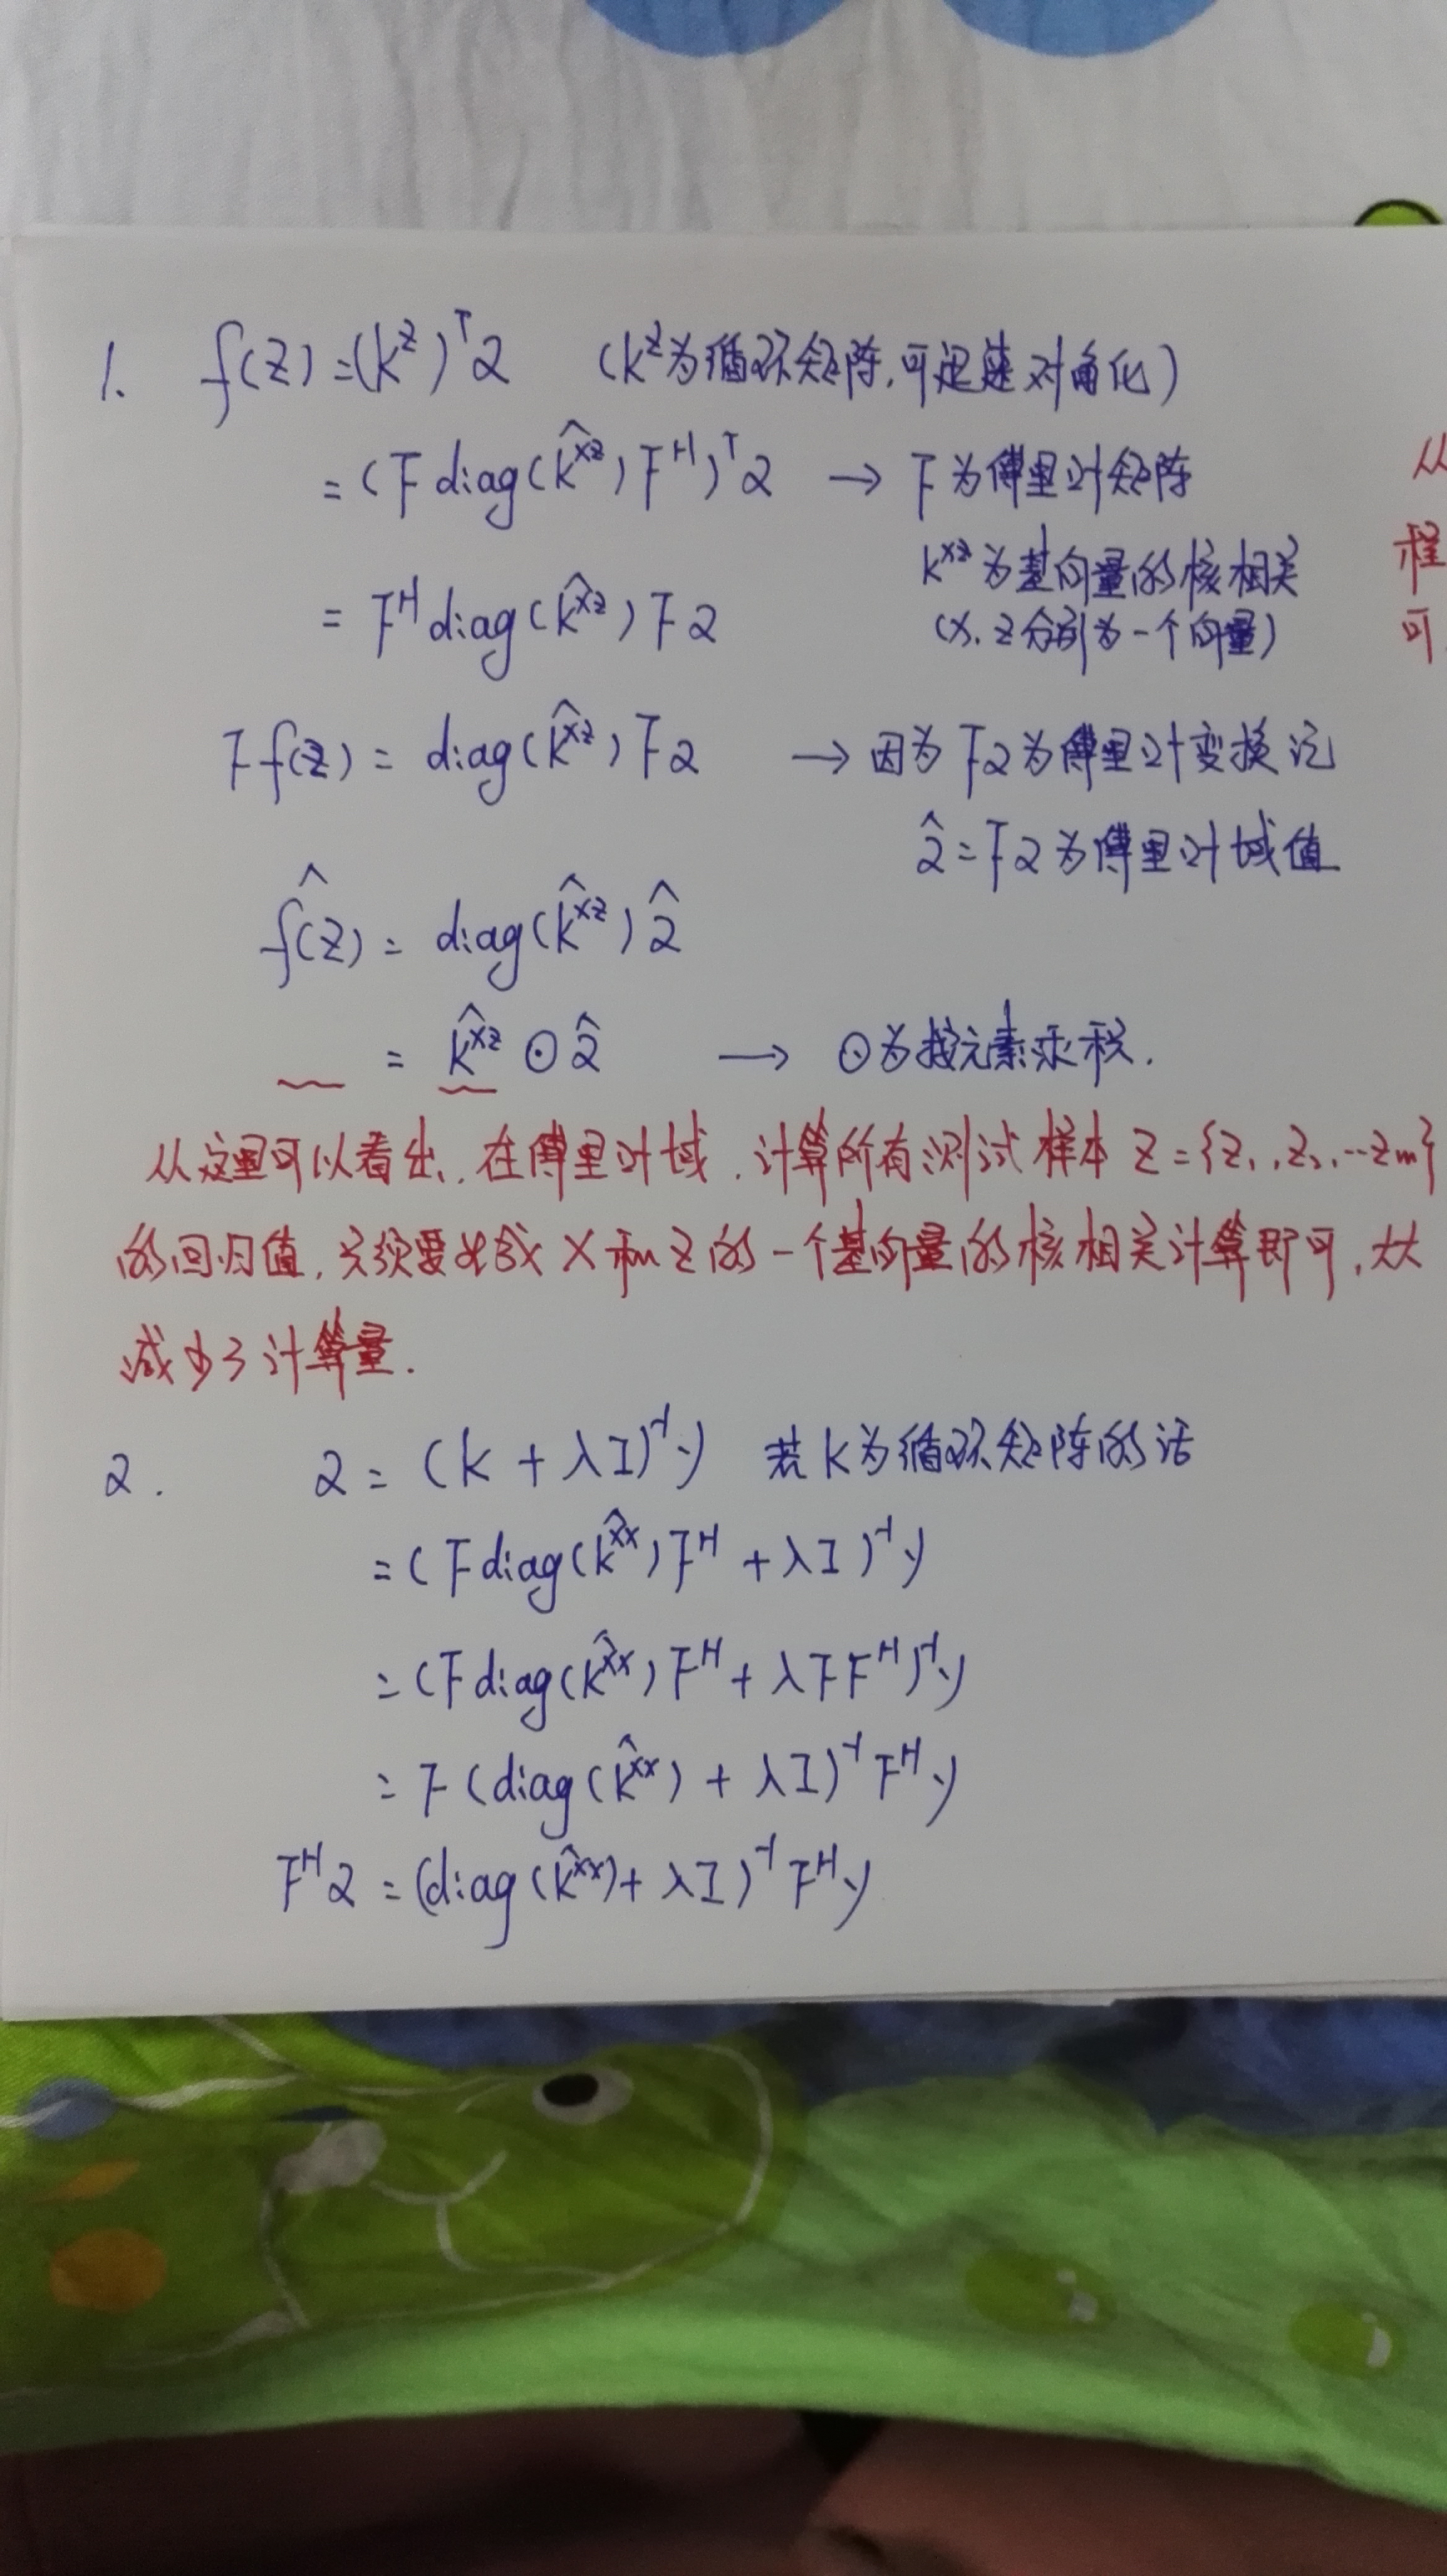 1. f(z) = (k^z)^T α （k^z为循环矩阵,可迅速对角化）
= (F diag(k̂^xz) F^H)^T α → F为傅里叶矩阵
从
k^xz为基向量的核相关
程
= F^H diag(k̂^xz) F α
（x, z分别为一个向量）
可
F f(z) = diag(k̂^xz) F α → 因为Fα为傅里叶变换记
α̂ = Fα为傅里叶域值
f̂(z) = diag(k̂^xz) α̂
= k̂^xz ⊙ α̂ → ⊙为按元素求积.
从这里可以看出,在傅里叶域,计算所有测试样本 Z = {z1, z2, ... zm}
的回归值,只须要求解X和Z的一个基向量的核相关计算即可,大大
减少了计算量.
2. α = (K + λI)^-1 y 若K为循环矩阵的话
= (F diag(k̂^xx) F^H + λI)^-1 y
= (F diag(k̂^xx) F^H + λFF^H)^-1 y
= F (diag(k̂^xx) + λI)^-1 F^H y
F^H α = (diag(k̂^xx) + λI)^-1 F^H y